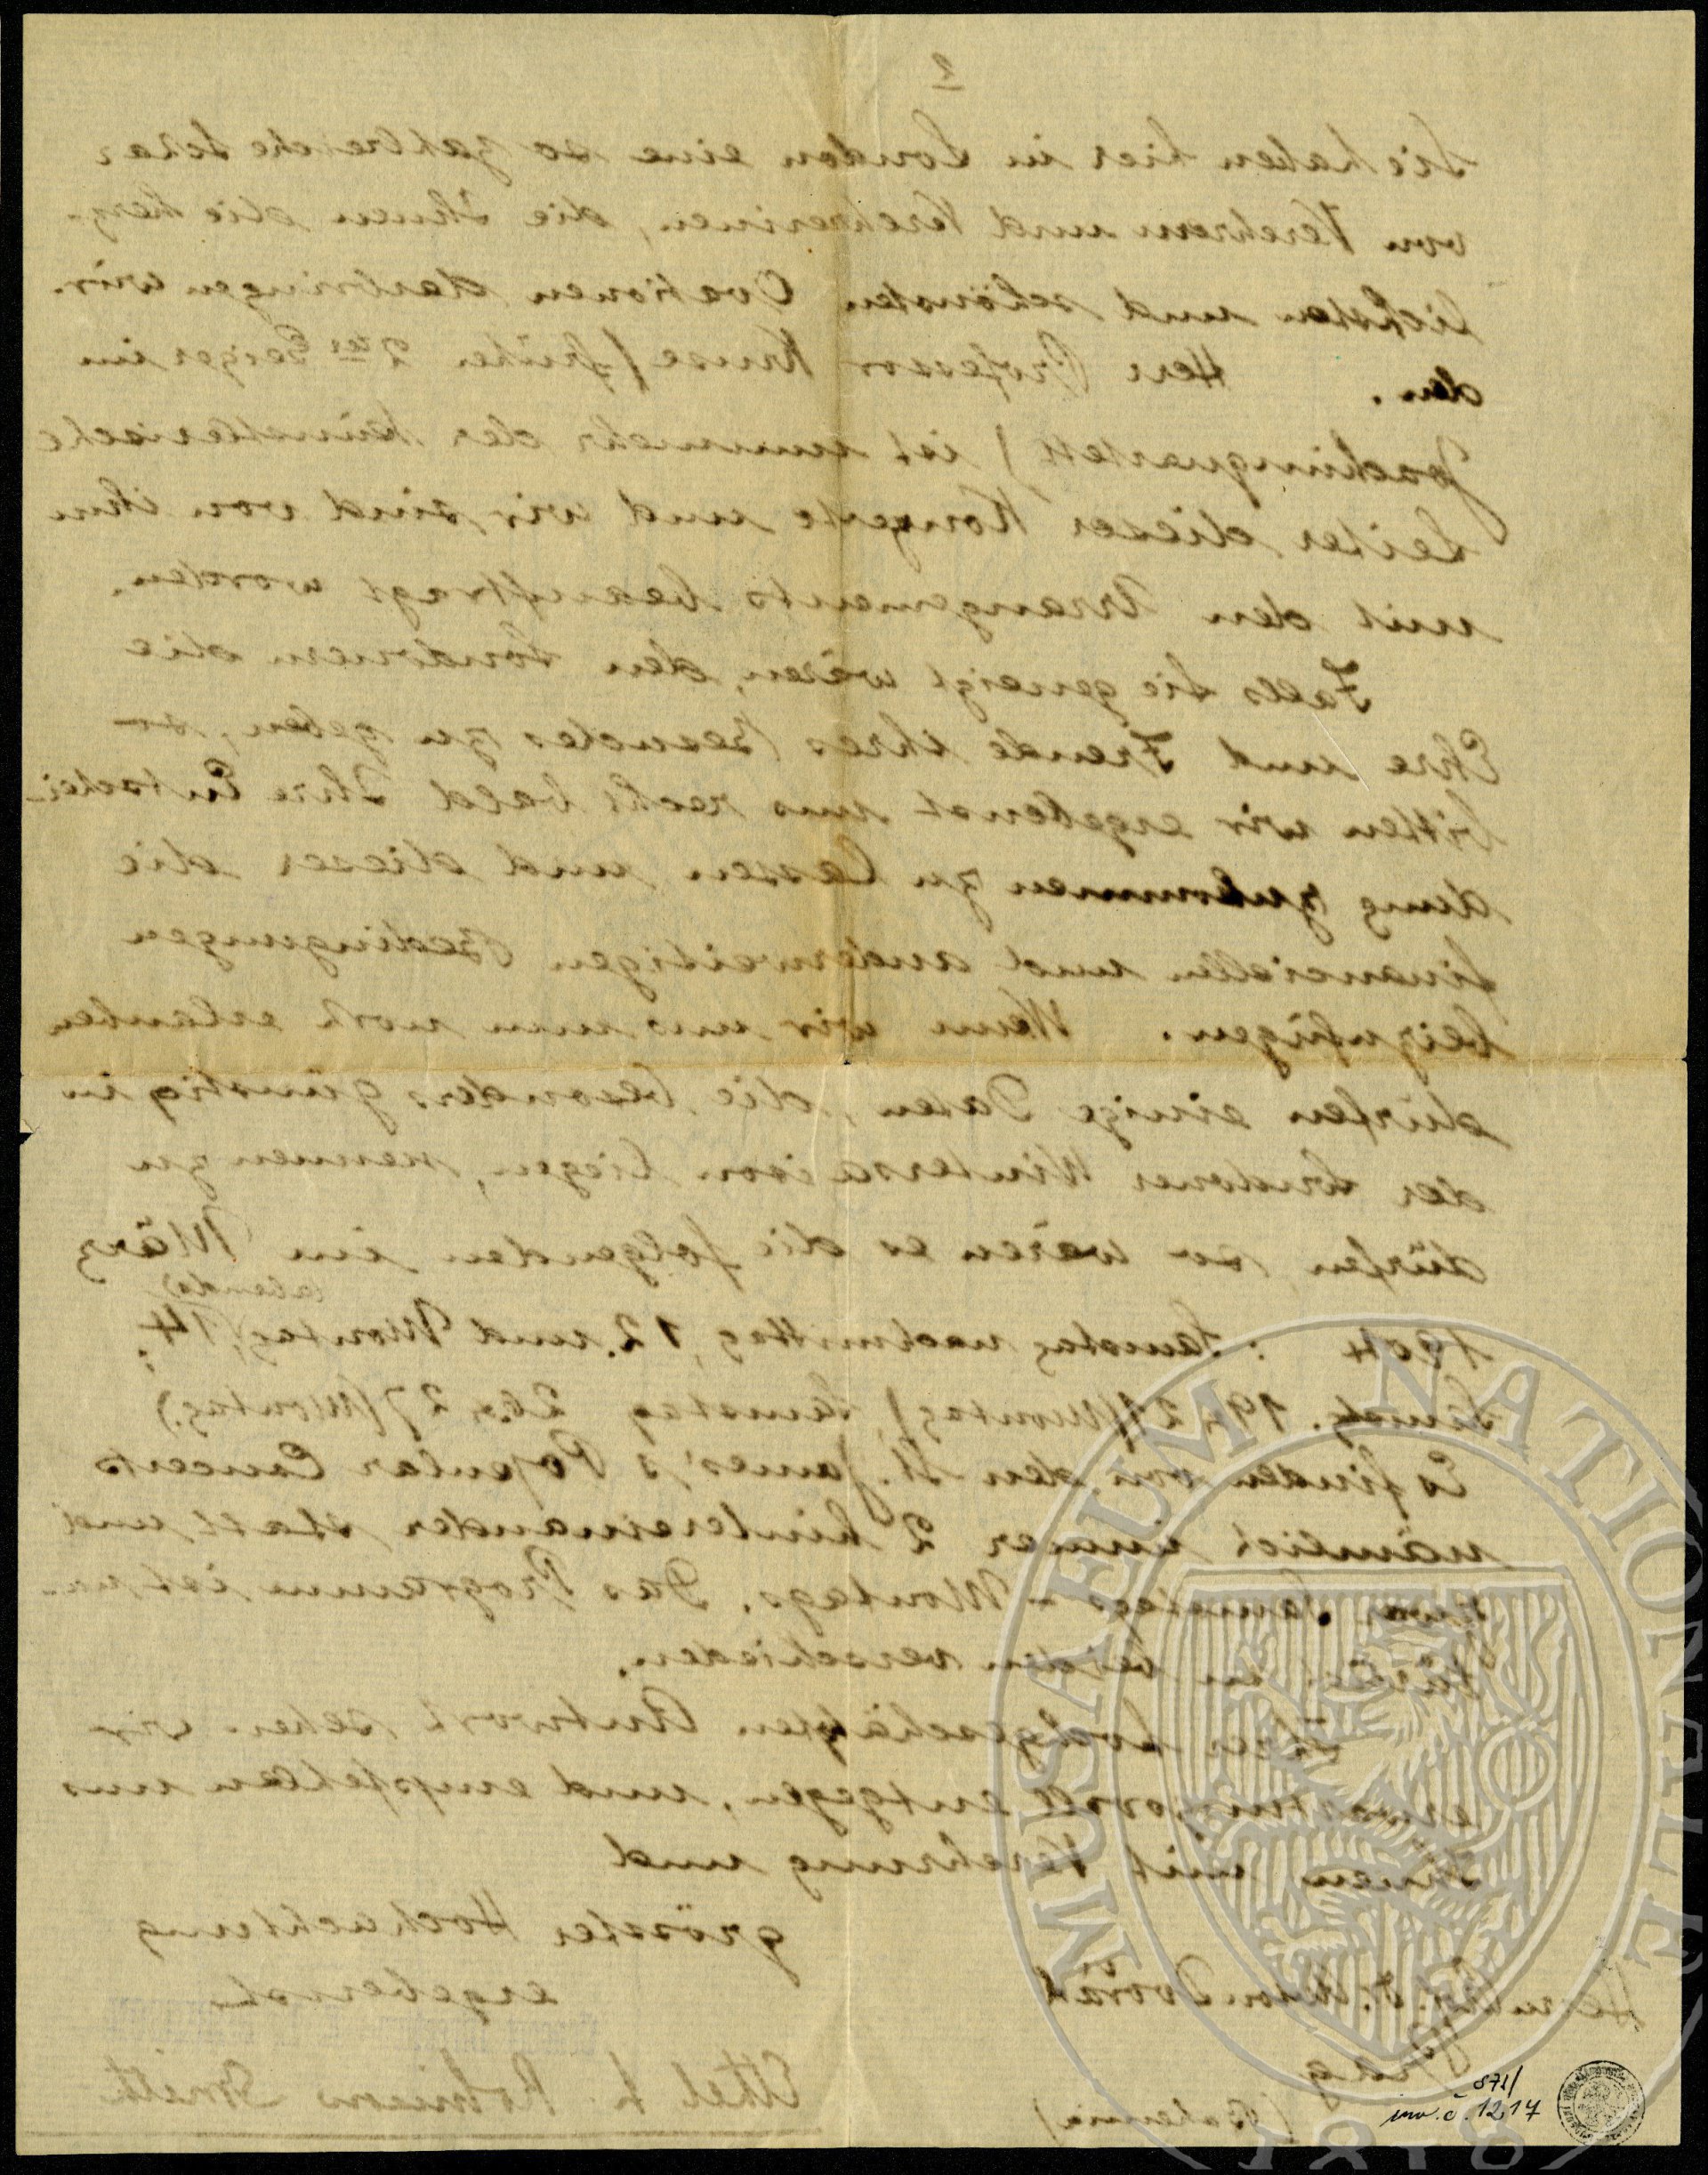 2
Sie haben hier in London eine so zahlreiche Schar
von Verehrern und Verehrerinen, die Ihnen die herz-
lichsten und schönsten Ovationen darbringen wür-
den. Herr Professor Kruse (früher 2ter Geiger im
Joachimquartett) ist nunmehr der künstlerische
Leiter dieser Konzerte und wir sind von ihm
mit den Arrangements beauftragt worden.
Falls Sie geneigt wären, den Londonern die
Ehre und Freude Ihres Besuches zu geben, so
bitten wir ergebenst uns recht bald Ihre Entschei-
dung zukommen zu lassen und dieser die
financiellen und anderweitigen Bedingungen
beizufügen. Wenn wir uns nun noch erlauben
dürfen einige Daten, die besonders günstig in
der Londoner Wintersaison liegen, nennen zu
dürfen, so wären es die folgenden im März
abends)
1904 : Samstag nachmittag, 12. und Montag, 14.,
19, 21 (Montag), Samstag 26, 27 (Montag.)
Es finden von den St. James's Popular Concerts
nämlich immer 2 hintereinander statt und
zwar Samstags - Montags. Das Programm ist
in beiden verschieden.
Ihrer hochgeschätzten Antwort sehen wir
erwartungsvoll entgegen, und empfehlen uns
Ihnen mit Verehrung und
grösster Hochachtung
ergebenst
Herrn Anton Dvořák
Prag
(Bohemia)
Ethel L. Robinson Smith
871/
inv. č. 1217
MUSAEUM NATIONALE
1818